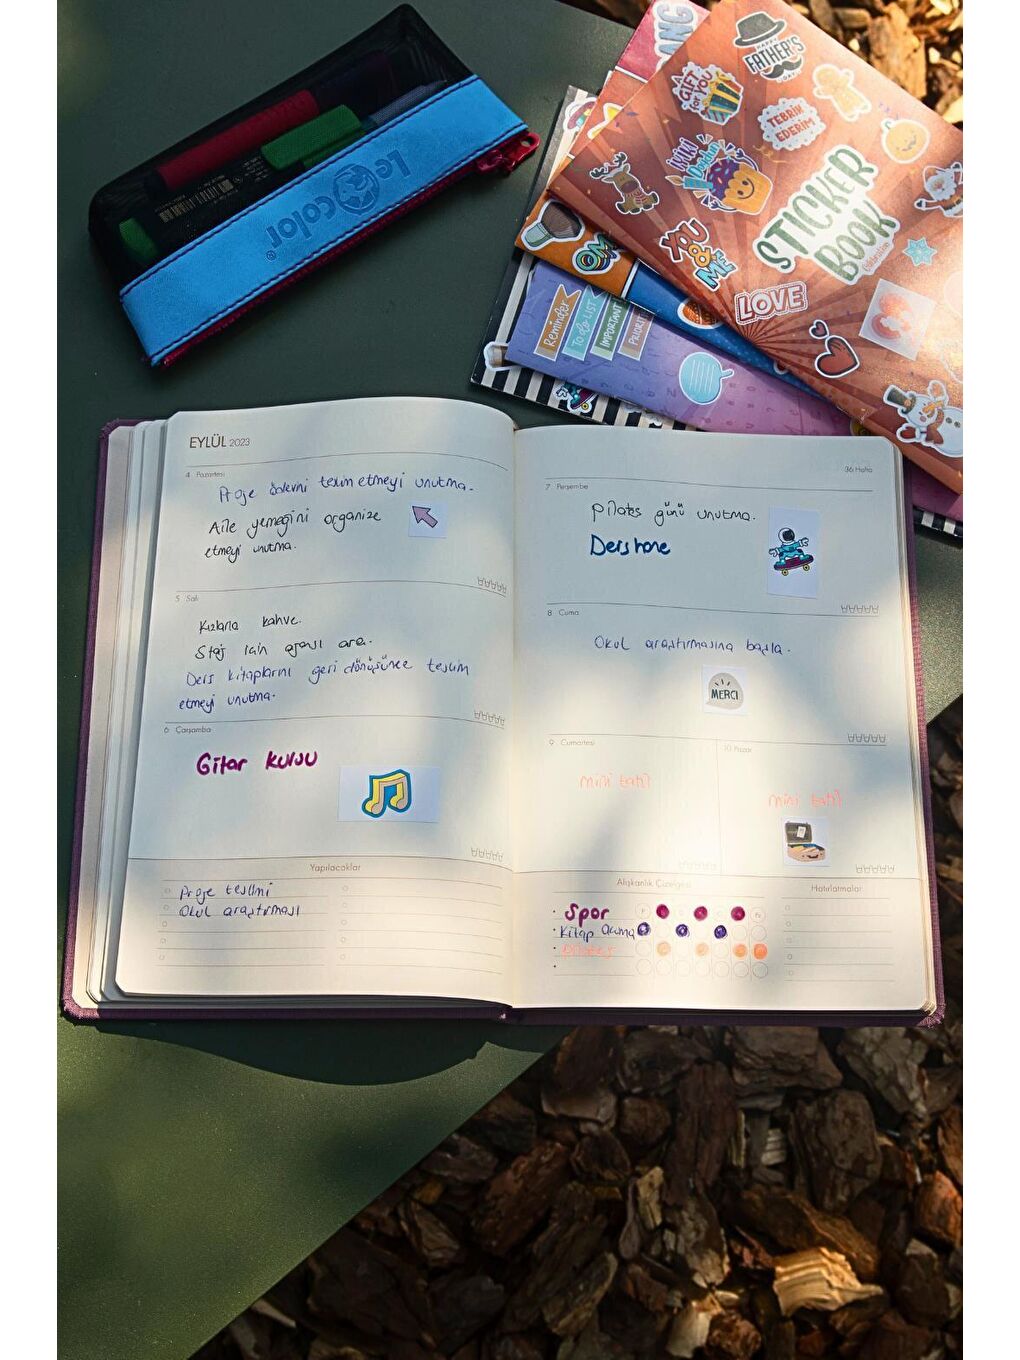 Le Color
HAPPY
FATHER'S
DAY
A
GIFT
FOR YOU
TEBRİK
EDERİM
İyiki
Doğdun
STICKER
BOOK
Celebration
YOU
&
ME
LOVE
OMG
Reminder
To do LIST
IMPORTANT
PRIORITY
EYLÜL 2023
4 Pazartesi
Proje ödevini teslim etmeyi unutma.
Aile yemeğini organize
etmeyi unutma.
5 Salı
Kızlarla kahve.
Staj için ajansı ara.
Ders kitaplarını geri dönüşüme teslim
etmeyi unutma.
6 Çarşamba
Gitar kursu
Yapılacaklar
Proje teslimi
Okul araştırması
36 Hafta
7 Perşembe
Pilates günü unutma.
Dershane
8 Cuma
Okul araştırmasına başla.
MERCI
9 Cumartesi
mini tatil
10 Pazar
mini tatil
Alışkanlık Çizelgesi
Spor
Kitap Okuma
Pilates
Hatırlatmalar